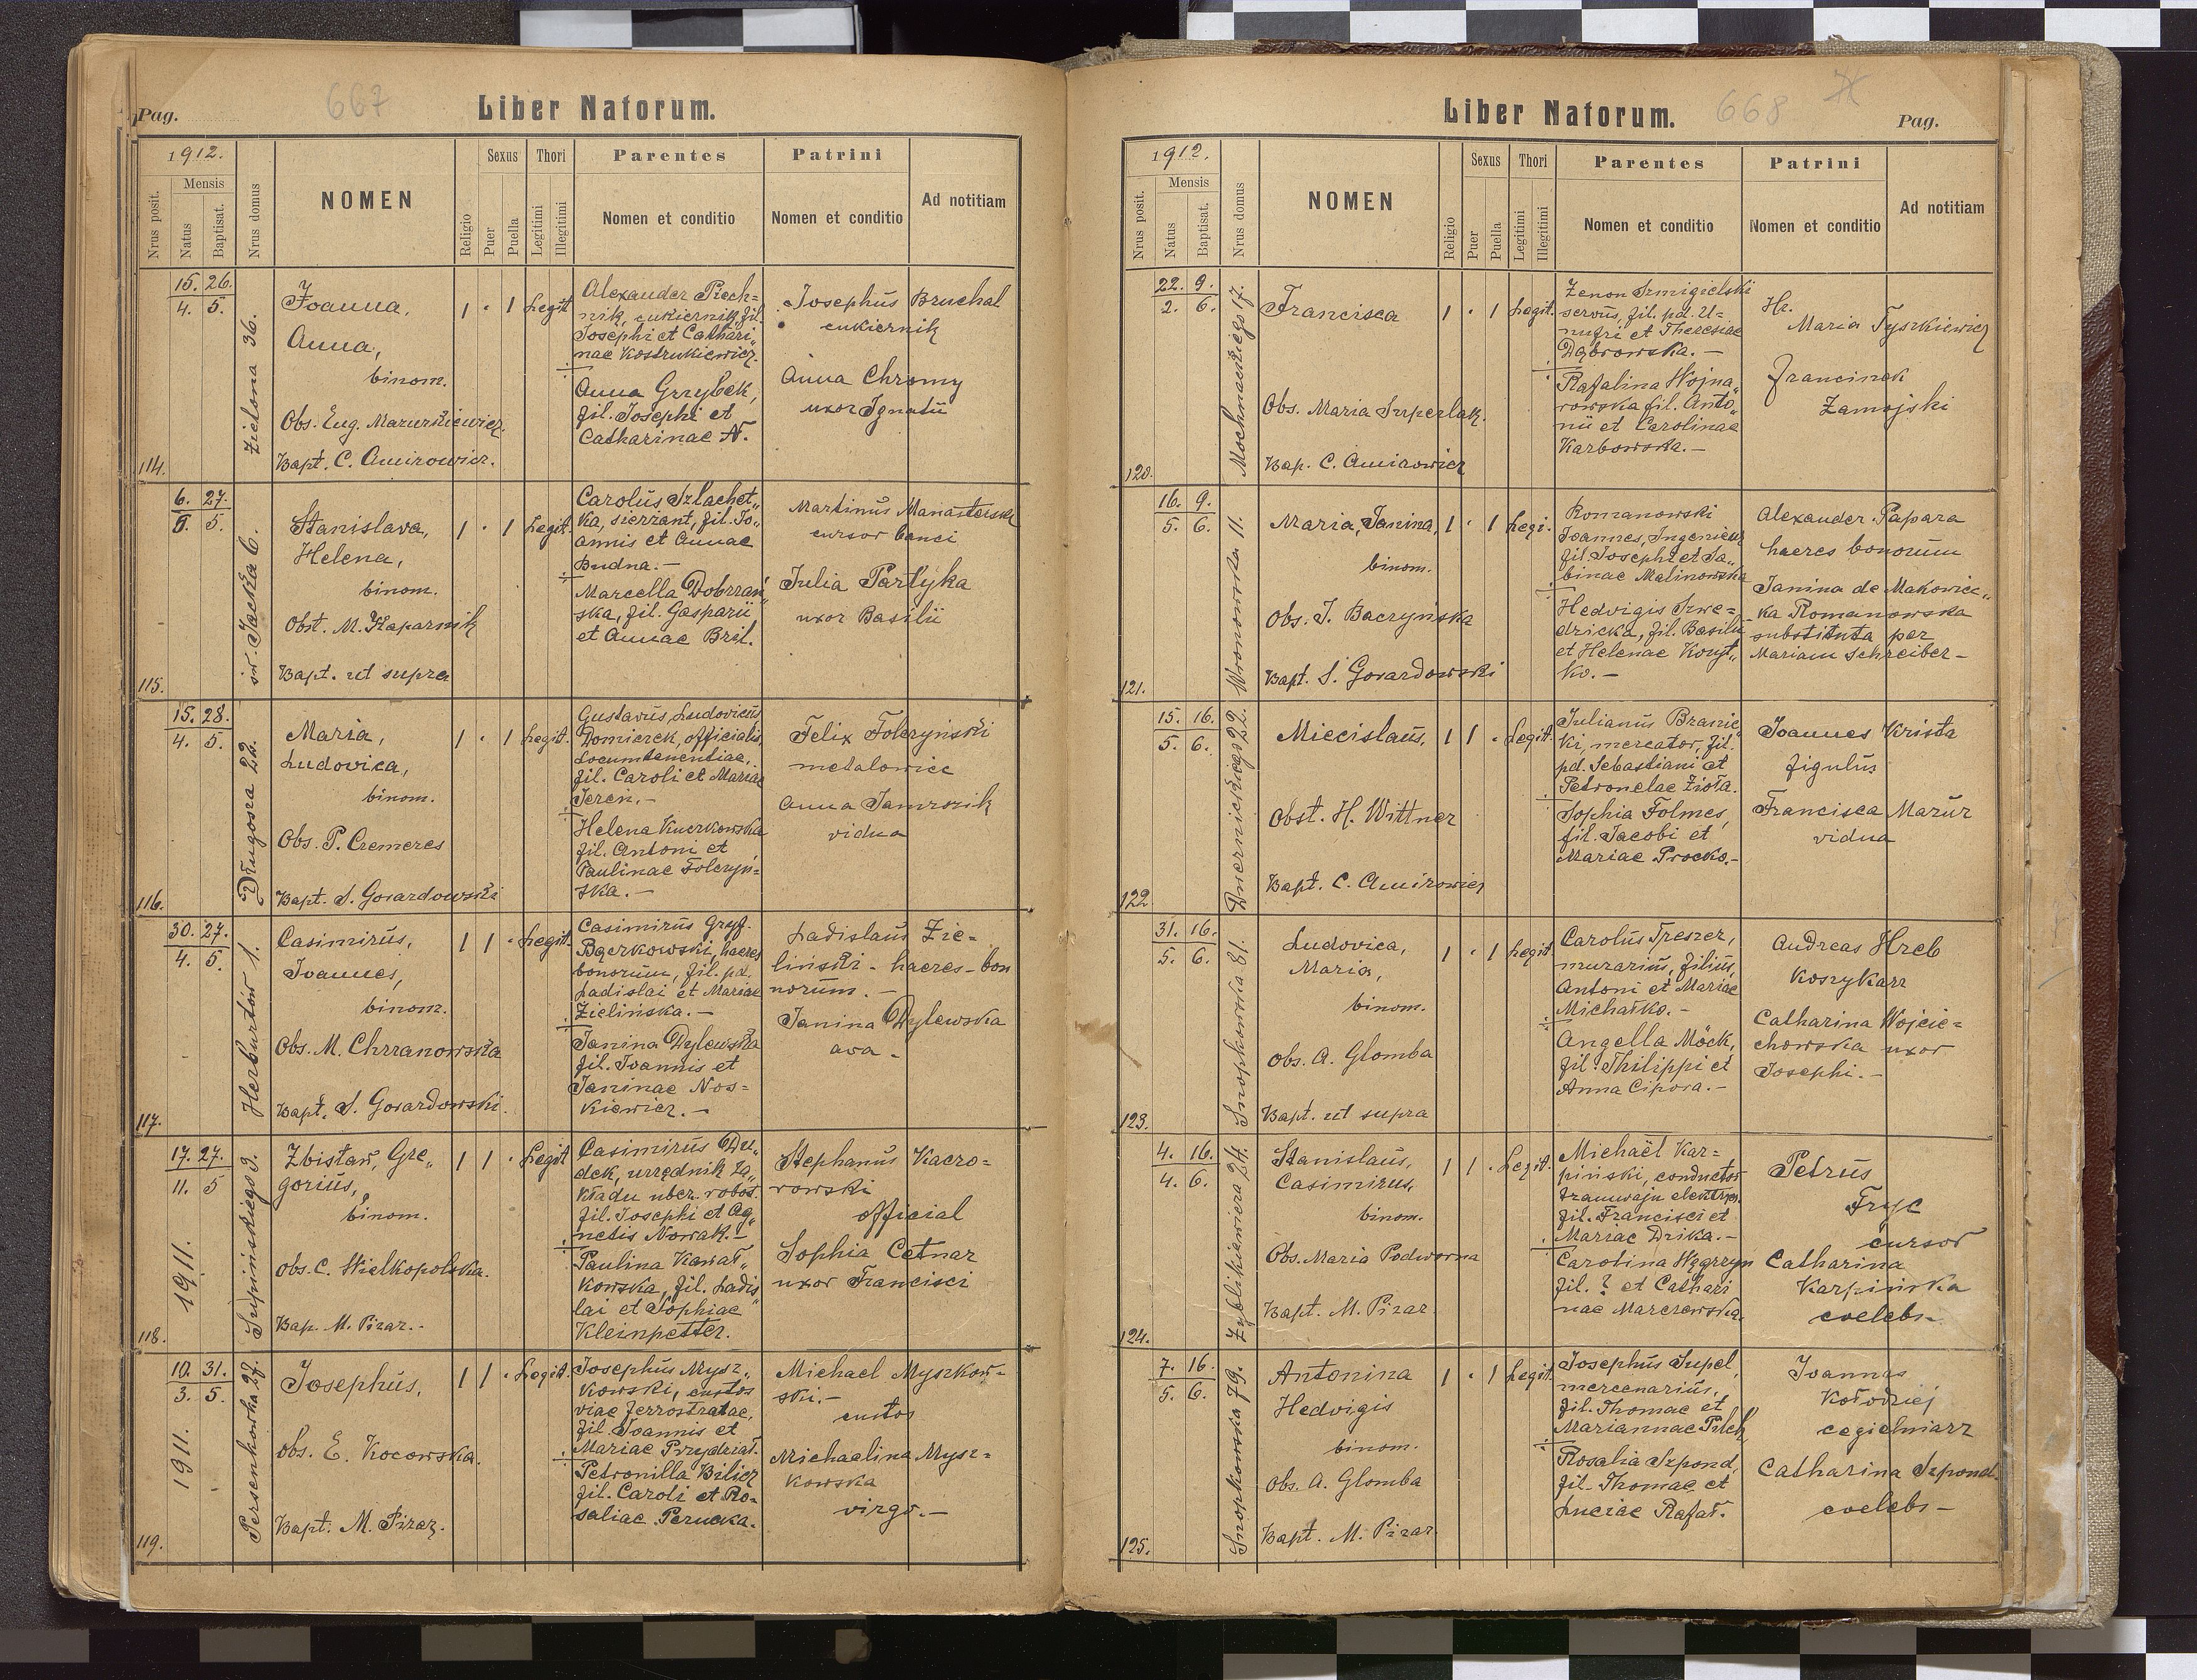 Pag.
667
Liber Natorum.
1912.
Nrus posit.
Mensis
Natus
Baptisat.
Nrus domus
NOMEN
Religio
Sexus
Puer
Puella
Thori
Legitimi
Illegitimi
Parentes
Nomen et conditio
Patrini
Nomen et conditio
Ad notitiam
114.
15. 26.
4. 5.
Zielona 36.
Joanna,
Anna,
binom.
Obs. Eug. Mazurkiewicz.
Bapt. C. Amirowicz.
1 · 1 Legit
Alexander Piech=
nik, cukiernik, fil.
Josephi et Cathari„
nae Kostrukiewicz.
Anna Grzybek,
fil. Josephi et
Catharinae N.
Josephus Bruchal
cukiernik
Anna Chromy
uxor Ignatii
115.
6. 27.
5. 5.
św. Jacka 6.
Stanislava,
Helena,
binom.
Obst. M. Kaparnik
Bapt. ut supra
1 · 1 Legit.
Carolus Szlachet„
ka, sierzant, fil. Jo„
annis et Annae
Budna.—
Marcella Dobrzań„
ska, fil. Gasparii
et Annae Bril.
Martinus Manasterski
cursor banci
Julia Partyka
uxor Basilii
116.
15. 28.
4. 5.
Długosza 22.
Maria,
Ludovica,
binom.
Obs. P. Cremeres
Bapt. S. Gorardowski
1 · 1 Legit.
Gustavus, Ludovicus
Domierek, officialis
Locumtenentiae,
fil. Caroli et Mariae
Jeren.—
Helena Kuczkowska
fil. Antoni et
Paulinae Folczyń=
ska.—
Felix Folczyński
metalowiec
Anna Jamrozik
vidua
117.
30. 27.
4. 5.
Herburtów 1.
Casimirus,
Joannes,
binom.
Obs. M. Chrzanowska
Bapt. S. Gorardowski.
1 1 · Legit.
Casimirus Gryf.
Bączkowski, haeres
bonorum, fil. pd.
Ladislai et Mariae
Zielińska.—
Janina Dylewska
fil. Joannis et
Janinae Nos=
kiewicz.—
Ladislaus Zie=
liński - haeres - bon
norum.—
Janina Dylewska
ava -
118.
17. 27.
11. 5
1911.
Supińskiego 3.
Zbisław, Gre„
gorius,
binom.
Obs. C. Wielkopolska.
Bap. M. Pizar.-
1 1 · Legit
Casimirus Du„
dek, urzędnik Za„
kładu uber. robot.
fil. Josephi et Ag„
netis Nowak.—
Paulina Kawał„
kowska, fil. Ladis„
lai et Sophiae
Kleinpetter.
Stephanus Kaczo=
rowski
official
Sophia Cetnar
uxor Francisci
119.
10. 31.
3. 5.
1911.
Persenkowka 27.
Josephus,
Obs. E. Kocowska.
Bapt. M. Pizaz.
1 1 · Legit.
Josephus Mysz„
kowski, custos
viae ferrostratae,
fil. Joannis et
Mariae Przydział.
Petronilla Bilicz
fil. Caroli et Ro=
saliae Perucka.
Michael Myszkow-
ski.—
custos
Michaelina Mysz=
kowska
virgo.—
Liber Natorum.
668
Pag.
1912.
Nrus posit.
Mensis
Natus
Baptisat.
Nrus domus
NOMEN
Religio
Sexus
Puer
Puella
Thori
Legitimi
Illegitimi
Parentes
Nomen et conditio
Patrini
Nomen et conditio
Ad notitiam
120.
22. 9.
2. 6.
Mochnackiego 17.
Francisca
Obs. Maria Superlak.
Bap. C. Amirowicz
1 · 1 Legit.
Zenon Szmigielski
servus, fil. pd. U=
nufri et Theresiae
Dąbrowska.—
Rafalina Wojna„
rowska fil. Anto„
nii et Carolinae
Karbowska.—
Hr.
Maria Tyszkiewicz
Francinek
Zamojski
121.
16. 9.
5. 6.
Wronowska 11.
Maria, Janina,
binom.
Obs. J. Baczyńska
Bapt. S. Gorardowski
1 · 1 Legi.
Romanowski
Joannes, Ingenieur
fil. Josephi et Sa„
binae Malinowska
Hedvigis Szwe=
dzicka, fil. Basilii
et Helenae Konst„
ko.—
Alexander Papara
haeres bonorum
Janina de Makowiec„
ka Romanowska
substituta per
Mariam Schreiber—
122.
15. 16.
5. 6.
Dwernickiego 22.
Miecislaus,
Obst. H. Wittner
Bapt. C. Amirowicz
1 1 · Legit.
Julianus Branic„
ki, mercator, fil.
pd. Sebastiani et
Petronelae Zioła.
Sophia Folmes,
fil. Jacobi et
Mariae Procko.—
Joannes Krista
figulus
Francisca Mazur
vidua
123.
31. 16.
5. 6.
Snopkowska 81.
Ludovica,
Maria,
binom.
Obs. A. Glomba
Bapt. ut supra
1 · 1 Legit
Carolus Treszer,
murarius, filius,
Antoni et Mariae
Michałko.—
Angella Möck,
fil. Philippi et
Anna Cipora.—
Andreas Hreb
Koszykarz
Catharina Wojcie=
chowska uxor
Josephi.—
124.
4. 16.
4. 6.
Zyblikiewicza 24.
Stanislaus,
Casimirus,
binom.
Obs. Maria Podworna
Bapt. M. Pizar
1 1 · Legit.
Michaël Kar=
piński, conductor
tramwaju elektrycz.
fil. Francisci et
Mariae Dzika.—
Carolina Węgrzyn
fil. ? et Cathari
nae Marczewska.
Petrus
Fryc
cursor
Catharina
Karpińska
coelebs—
125.
7. 16.
5. 6.
Snopkowska 79.
Antonina
Hedvigis
binom.
Obs. A. Glomba
Bapt. M. Pizar
1 · 1 Legit.
Josephus Supel,
mercenarius,
fil. Thomae et
Mariannae Pilch
Rosalia Szpond,
fil. Thomae et
Luciae Rafał.
Joannes
Kołodziej
cegielniarz
Catharina Szpond
coelebs—